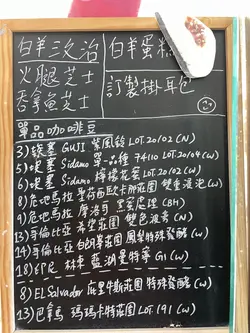 白羊三次治
火腿芝士
吞拿魚芝士
白羊蛋糕
訂製掛耳包
單品咖啡豆
3) 埃塞 GUJI 紫風鈴 LOT.20/02 (N)
5) 埃塞 Sidamo 單一品種 74110 LOT.20/04 (W)
6) 埃塞 Sidamo 檸檬花蜜 LOT.20/02 (W)
8) 危地馬拉 聖荷西歐卡那莊園 雙重浸泡 (W)
9) 危地馬拉 摩洛哥 黑蜜處理 (BH)
13) 哥倫比亞 希望莊園 雙色波旁 (N)
14) 哥倫比亞 白朗寧莊園 鳳梨特殊發酵 (W)
18) EPR 林東 藍湖曼特寧 G1 (W)
8) EL Salvador 庇里牛斯莊園 特殊發酵 (W)
13) 巴拿馬 瑪瑪卡特莊園 LOT 191 (W)